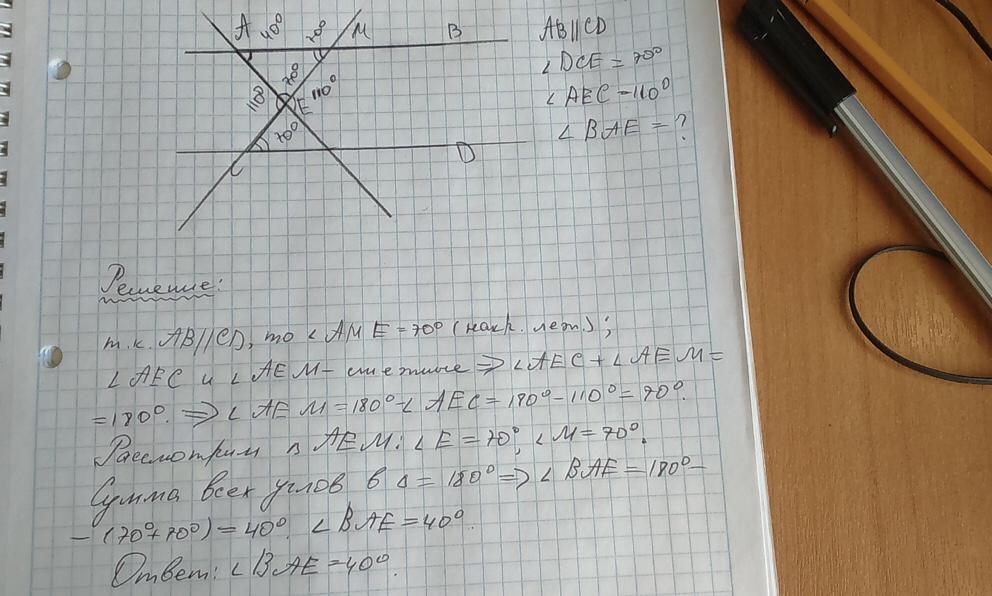 A 40° 70° M B
70°
110° 110°
E
70°
C D
AB||CD
∠DCE = 70°
∠AEC - 110°
∠BAE = ?
Решение:
т.к. AB//CD, то ∠AME = 70° (накр. леж.);
∠AEC и ∠AEM - смежные ⇒ ∠AEC + ∠AEM =
= 180°. ⇒ ∠AEM = 180° - ∠AEC = 180° - 110° = 70°.
Рассмотрим △ AEM: ∠E = 70°, ∠M = 70°.
Сумма всех углов в △ = 180° ⇒ ∠BAE = 180° -
- (70° + 70°) = 40°. ∠BAE = 40°.
Ответ: ∠BAE = 40°.